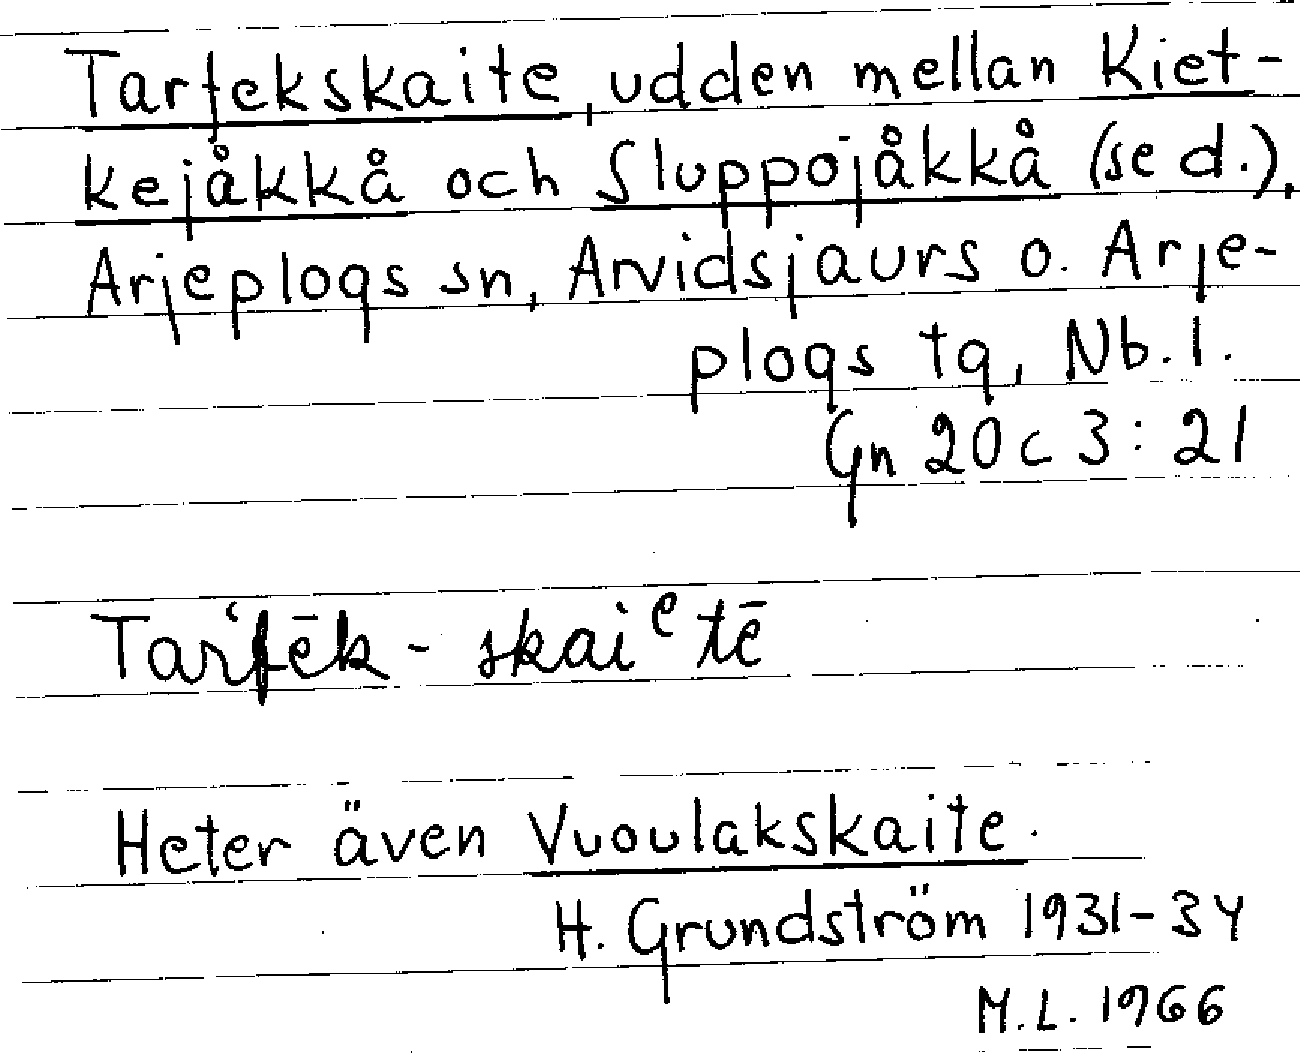 Tarfekskaite, udden mellan Kiet-
kejåkkå och Sluppojåkkå (se d.),
Arjeplogs sn, Arvidsjaurs o. Arje-
plogs tg, Nb. l.
Gn 20 c 3:21
Tar‘fēk - skaiᵉtē
Heter även Vuoulakskaite.
H. Grundström 1931-34
M.L. 1966